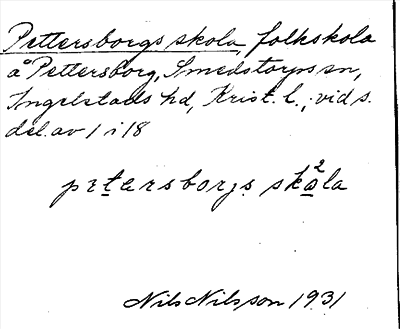 Pettersborgs skola, folkskola
å Pettersborg, Smedstorps sn,
Ingelstads hd, Krist. l.; vid s.
del. av 1 i 18
pɛtersborjs sk²ola
Nils Nilsson 1931